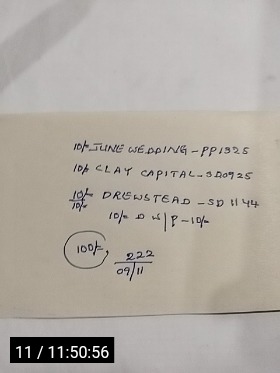 10/- JUNE WEDDING - PP1325
10/- CLAY CAPITAL - SD0925
10/- DREWSTEAD - SD 1144
10/-
10/- D W/P - 10/-
100/-, 222
09/11
11 / 11:50:56